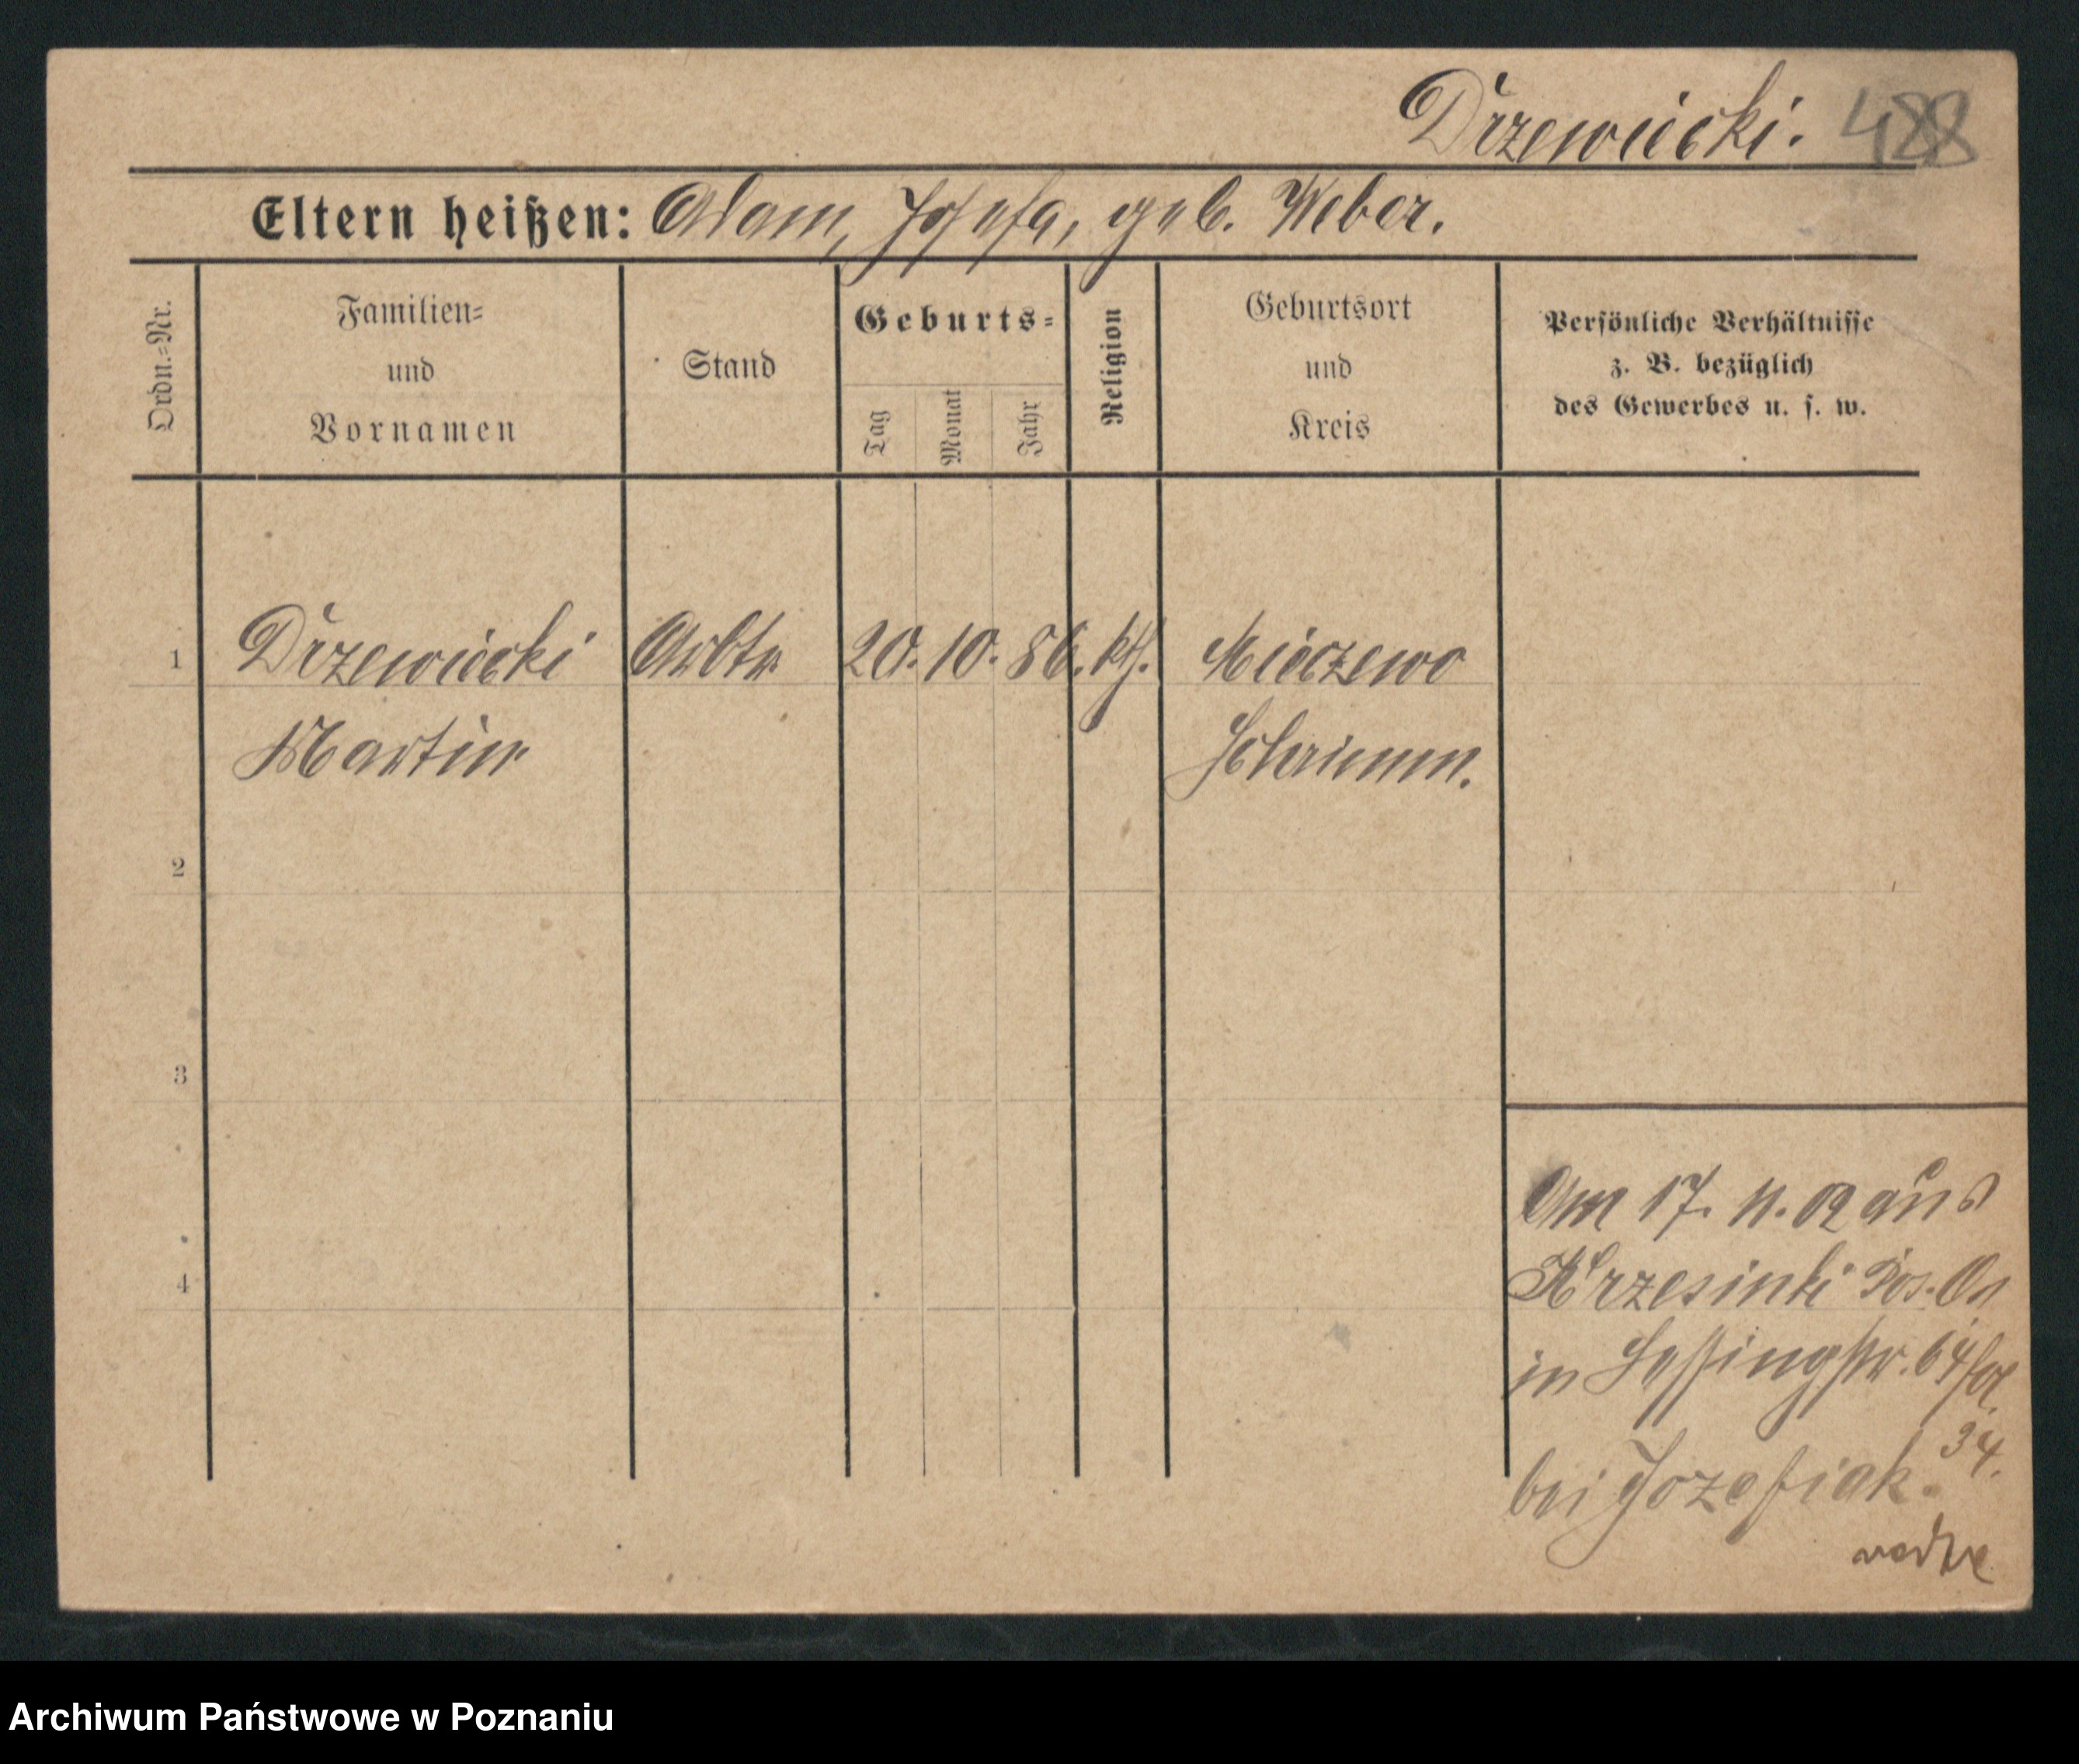 Drzewiecki. 488
Eltern heißen: Adam, Josefa, geb. Weber.
Ordn.=Nr.
Familien=
und
Vornamen
Stand
Geburts=
Tag
Monat
Jahr
Religion
Geburtsort
und
Kreis
Persönliche Verhältnisse
z. B. bezüglich
des Gewerbes u. s. w.
1 Drzewiecki Arbtr 20. 10. 86. kth. Mieczewo
Martin Schrimm.
2
3
4
Am 17. 11. 02 aus
Krzesinki Pos. Ost
in Lessingstr. 6
34.
bei Jozefiak.